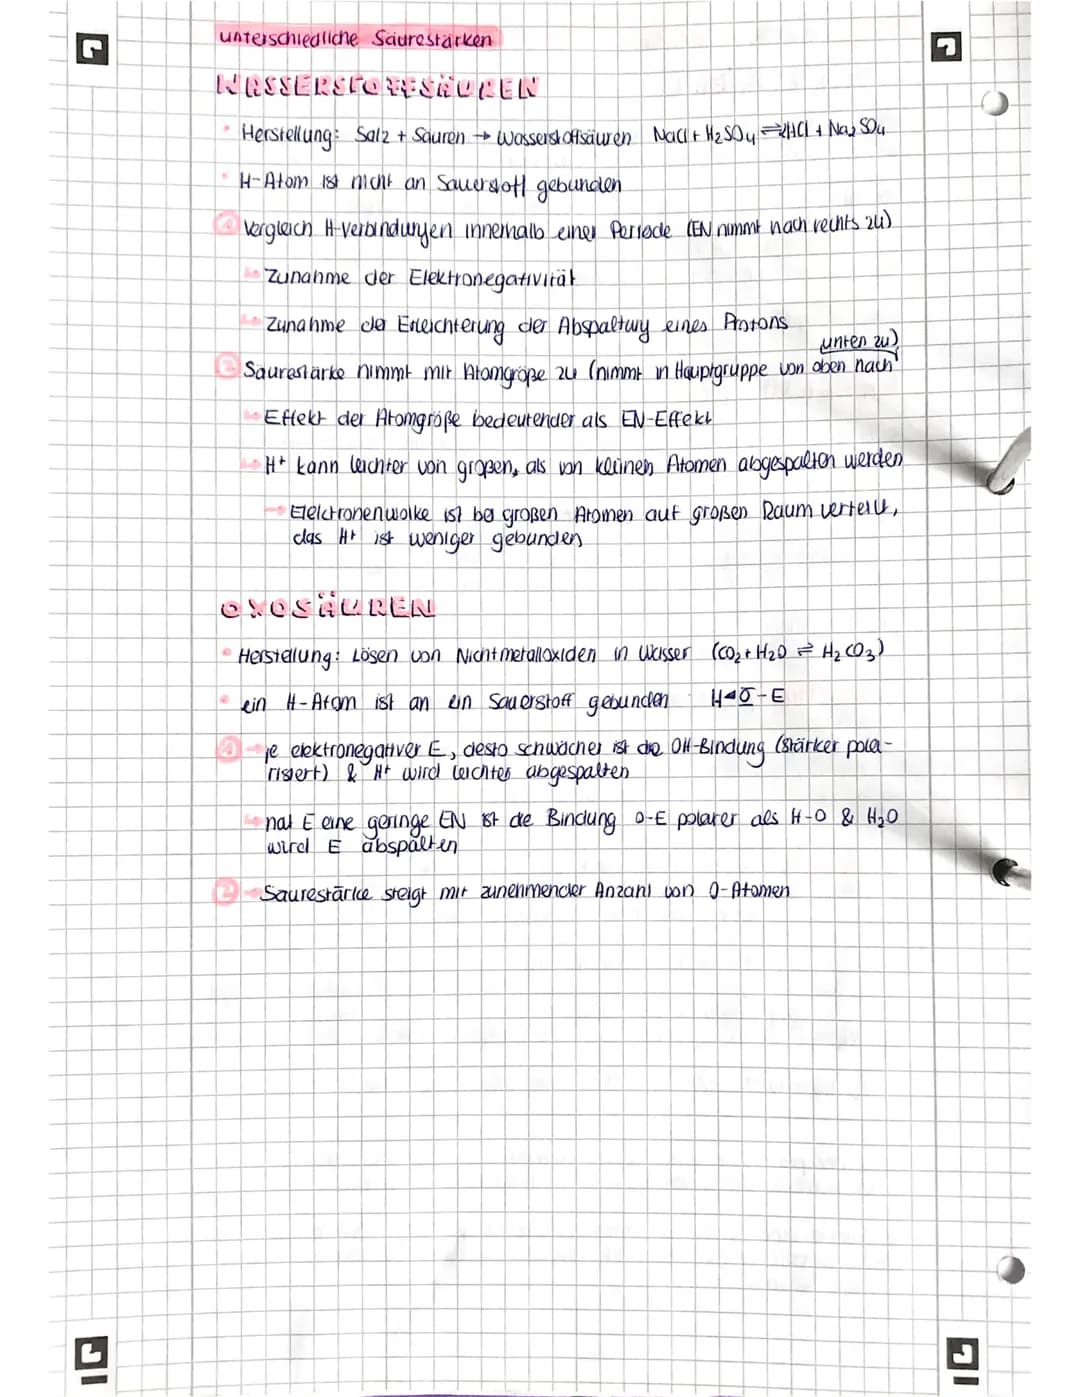 unterschiedliche Säurestärken
WASSERSTOFFSÄUREN
• Herstellung: Salz + Säuren → Wasserstoffsäuren NaCl + H₂SO₄ ⇌ 2HCl + Na₂SO₄
• H-Atom ist nicht an Sauerstoff gebunden
① Vergleich H-Verbindungen innerhalb einer Periode (EN nimmt nach rechts zu)
↳ Zunahme der Elektronegativität
↳ Zunahme der Erleichterung der Abspaltung eines Protons
② Säurestärke nimmt mit Atomgröße zu (nimmt in Hauptgruppe von oben nach unten zu)
↳ Effekt der Atomgröße bedeutender als EN-Effekt
↳ H⁺ kann leichter von großen, als von kleinen Atomen abgespalten werden
→ Elektronenwolke ist bei großen Atomen auf großen Raum verteilt,
das H⁺ ist weniger gebunden
OXOSÄUREN
• Herstellung: Lösen von Nichtmetalloxiden in Wasser (CO₂ + H₂O ⇌ H₂CO₃)
• ein H-Atom ist an ein Sauerstoff gebunden H◂O-E
① → je elektronegativer E, desto schwächer ist die OH-Bindung (stärker pola-
risiert) & H⁺ wird leichter abgespalten
↳ hat E eine geringe EN ist die Bindung O-E polarer als H-O & H₂O
wird E abspalten
② → Säurestärke steigt mit zunehmender Anzahl von O-Atomen